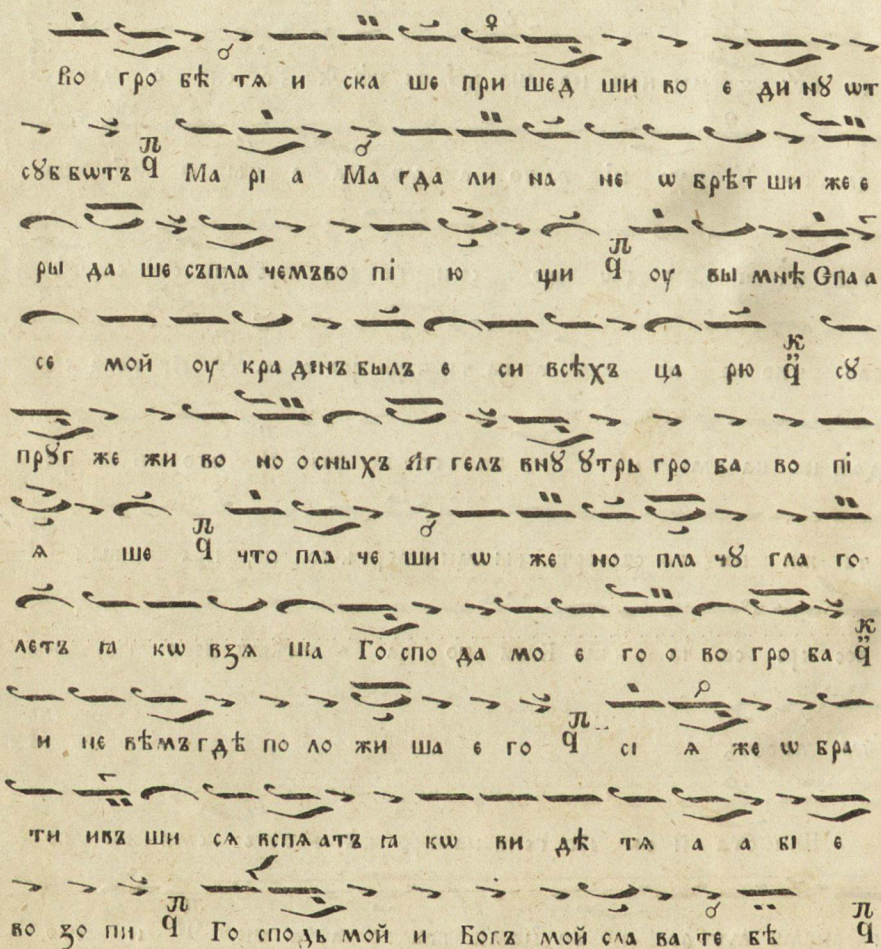 Во гро бѣ тѧ и ска ше при шед ши во е ди нꙋ ѡт
сꙋб бѡтъ Ма рі а Ма гда ли на не ѡ брѣт ши же е
ры да ше съпла чемъво пі ю щи оу вы мнѣ Спа а
се мой оу кра денъ былъ е си всѣхъ ца рю сꙋ
прꙋг же жи во но о сныхъ Аг гелъ внꙋ ꙋтрь гро ба во пі
ѧ ше что пла че ши ѡ же но пла чꙋ гла го
летъ ꙗ кѡ взѧ ша Го спо да мо е го о во гро ба
и не вѣмъ гдѣ по ло жи ша е го сі ѧ же ѡ бра
ти ивъ ши сѧ вспѧ атъ ꙗ кѡ ви дѣ тѧ а а ві е
во зо пи Го сподь мой и Богъ мой сла ва те бѣ